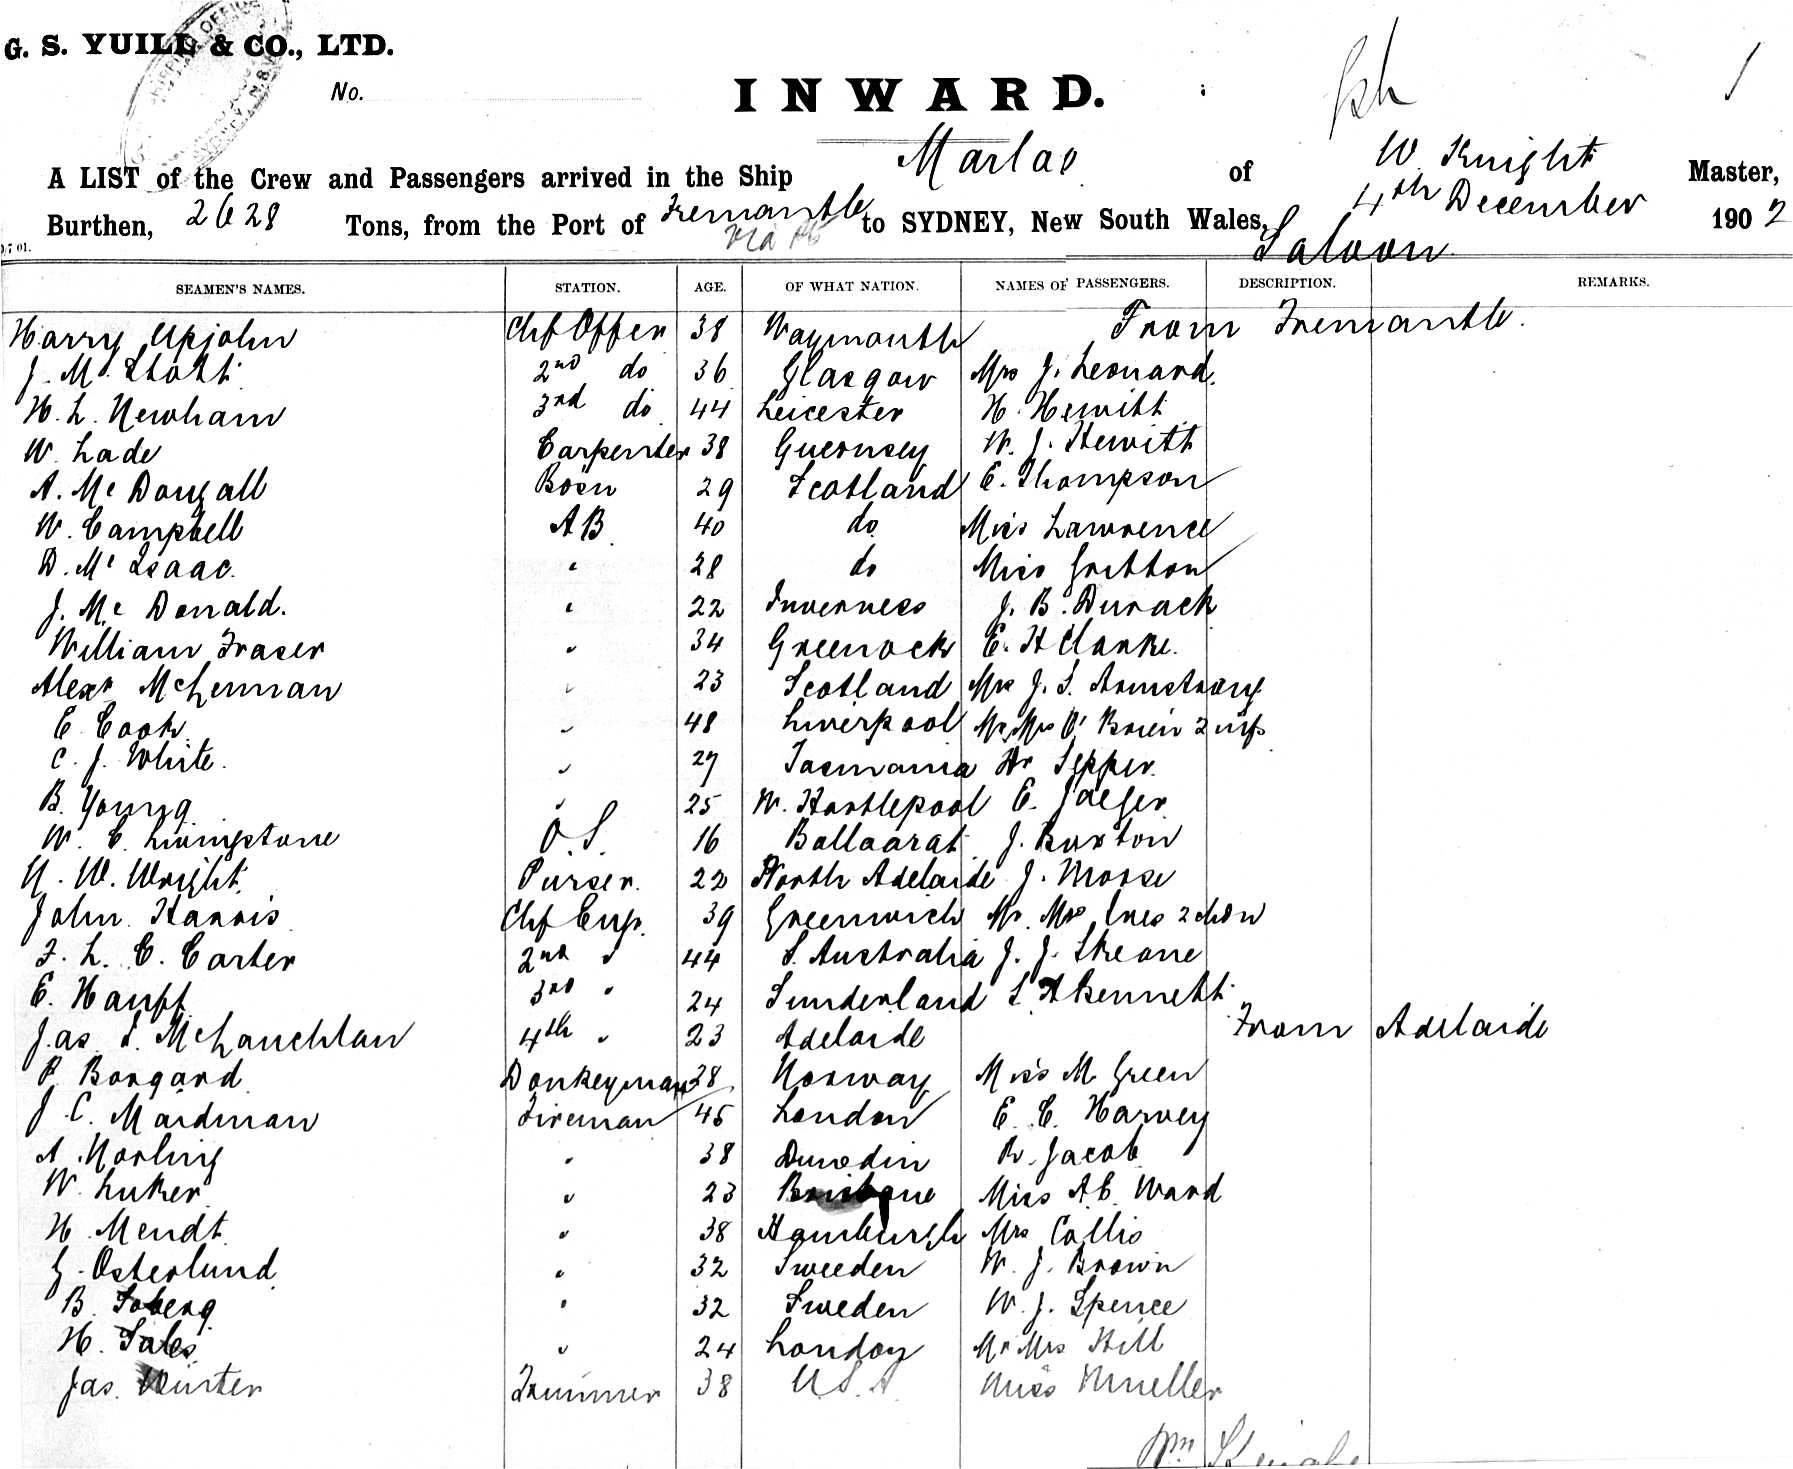 G. S. YUILL & CO., LTD.
No.
INWARD.
1
A LIST of the Crew and Passengers arrived in the Ship Marloo of W. Knight Master,
Burthen, 2628 Tons, from the Port of Fremantle to SYDNEY, New South Wales, 4th December 1902
via
Saloon
SEAMEN'S NAMES. STATION. AGE. OF WHAT NATION. NAMES OF PASSENGERS. DESCRIPTION. REMARKS.
Harry Upjohn Chf Offer 38 Waymouth From Fremantle.
J. Mc. Stott 2nd do 36 Glasgow Mrs J. Leonard.
H. L. Newham 3rd do 44 Leicester H. Hewitt
W. Lade Carpenter 38 Guernsey W. J. Hewitt
A. Mc Dougall Bosn 29 Scotland E. Thompson
W. Campbell AB 40 do Miss Lawrence
D. Mc Isaac. " 28 do Miss Gritton
J. Mc Donald. " 22 Inverness J. B. Durack
William Fraser " 34 Greenock E. H Clarke.
Alexr McLennan " 23 Scotland Mrs J. S. Armstrong
E. Cook " 48 Liverpool Mr Mrs O' Brien 2 infs
C. J. White. " 27 Tasmania Hr Tepper.
B. Young " 25 W. Hartlepool E. Jaeger
W. C. Livingstone O.S. 16 Ballaarat J. Buxton
N. W. Wright. Purser. 22 North Adelaide J. Morse
John Harris Chf Eng. 39 Greenwich Mr Mrs Ives 2 chdn
F. L. C. Carter 2nd " 44 S. Australia J. J. Skeane
E. Hauff 3rd " 24 Sunderland L A Bennett
Jas. S. McLauchlan 4th " 23 Adelaide From Adelaide
P. Borgard Donkeyman 38 Norway Miss M Green
J. C. Maidman Fireman 45 London E. C. Harvey
A. Norling " 38 Dunedin R. Jacob
W. Luker " 23 Brisbane Miss A C. Ward
H. Mendt. " 38 Hamburgh Mrs Collis
G. Osterlund " 32 Sweeden W. J. Brown
B. Soberg " 32 Sweden W. J. Spence
H. Sales " 24 London Mr Mrs Hill
Jas. Winter Trimmer 38 U.S.A. Miss Mueller
Wm